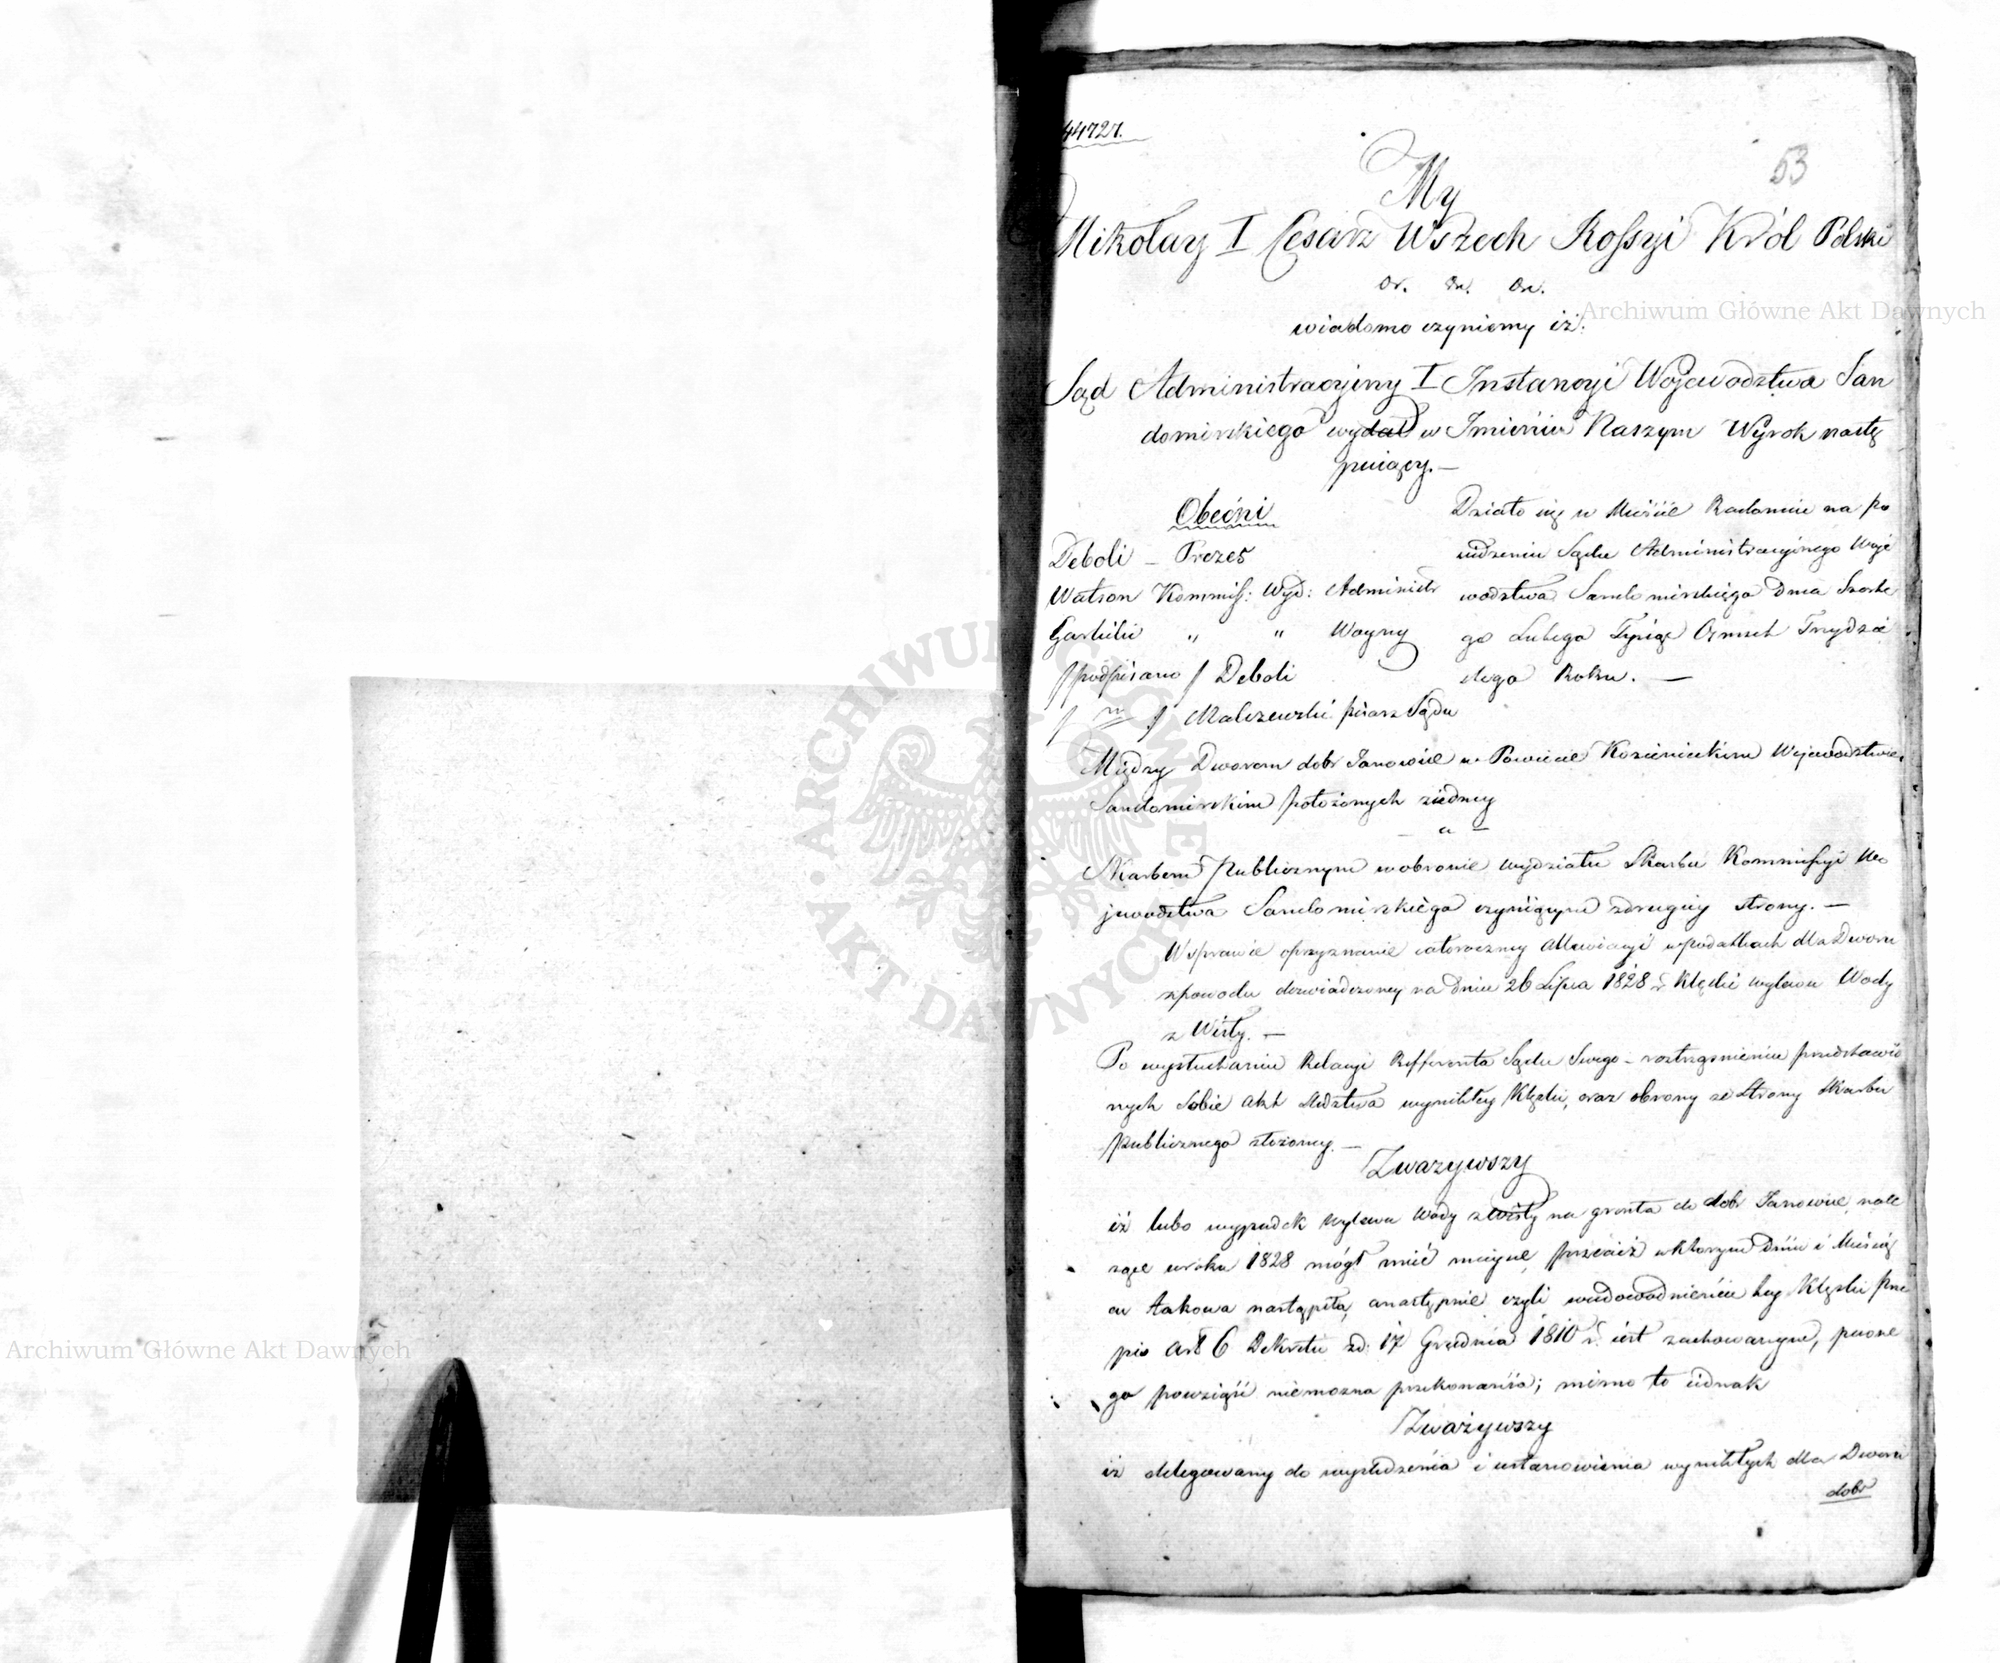 44727.
53
My
Mikołay I Cesarz Wszech Rossyi Król Polski
wiadomo czyniemy iż:
Archiwum Główne Akt Dawnych
Sąd Administracyiny I Instancyi Wojewodztwa San
domirskiego wydał w Imieniu Naszym Wyrok nastę
puiący. —
Obecni
Deboli — Prezes
Watson Kommiss: Wyd: Administr
" " Woyny
/podpisano/ Deboli
Malczewski pisarz Sądu
Działo się w Mieście Radomiu na po
siedzeniu Sądu Administracyinego Woje
wodztwa Sandomirskiego Dnia Szoste
go Lutego Tysiąc Ośmset Trzydzie
stego Roku. —
Między Dworem dobr Janowiec w Powiecie Kozienickim Wojewodztwie
Sandomirskim położonych ziedney
— a —
Skarbem Publicznym w obronie Wydziału Skarbu Kommissyi Wo
jewodztwa Sandomirskiego czyniącym zdrugiey strony. —
W sprawie o przyznanie całoroczney allewiacyi w podatkach dla Dworu
z powodu doświadczoney na dniu 26 Lipca 1828 r. Klęski wylewu Wody
z Wisły. —
Po wysłuchaniu Relacyi Refferenta Sądu Swego — roztrząśnieniu przedstawio
nych Sobie akt śledztwa wynikłey Klęski, oraz obrony ze Strony Skarbu
Publicznego złożoney. —
Zważywszy
iż lubo wypadek wylewu Wody z Wisły na grunta do dobr Janowiec nale
żące w roku 1828 mógł mieć mieysce, przecież w którym Dniu i Miesią
cu takowa nastąpiła, a następnie czyli w udowodnieniu tey Klęski prze
pis Art 6 Dekretu zd: 17 Grudnia 1810 r. iest zachowanym, pewne
go powziąść niemożna przekonania; mimo to iednak
Zważywszy
iż delegowany do wyśledzenia i ustanowienia wynikłych dla Dworu
dobr
Archiwum Główne Akt Dawnych
ARCHIWUM GŁÓWNE AKT DAWNYCH